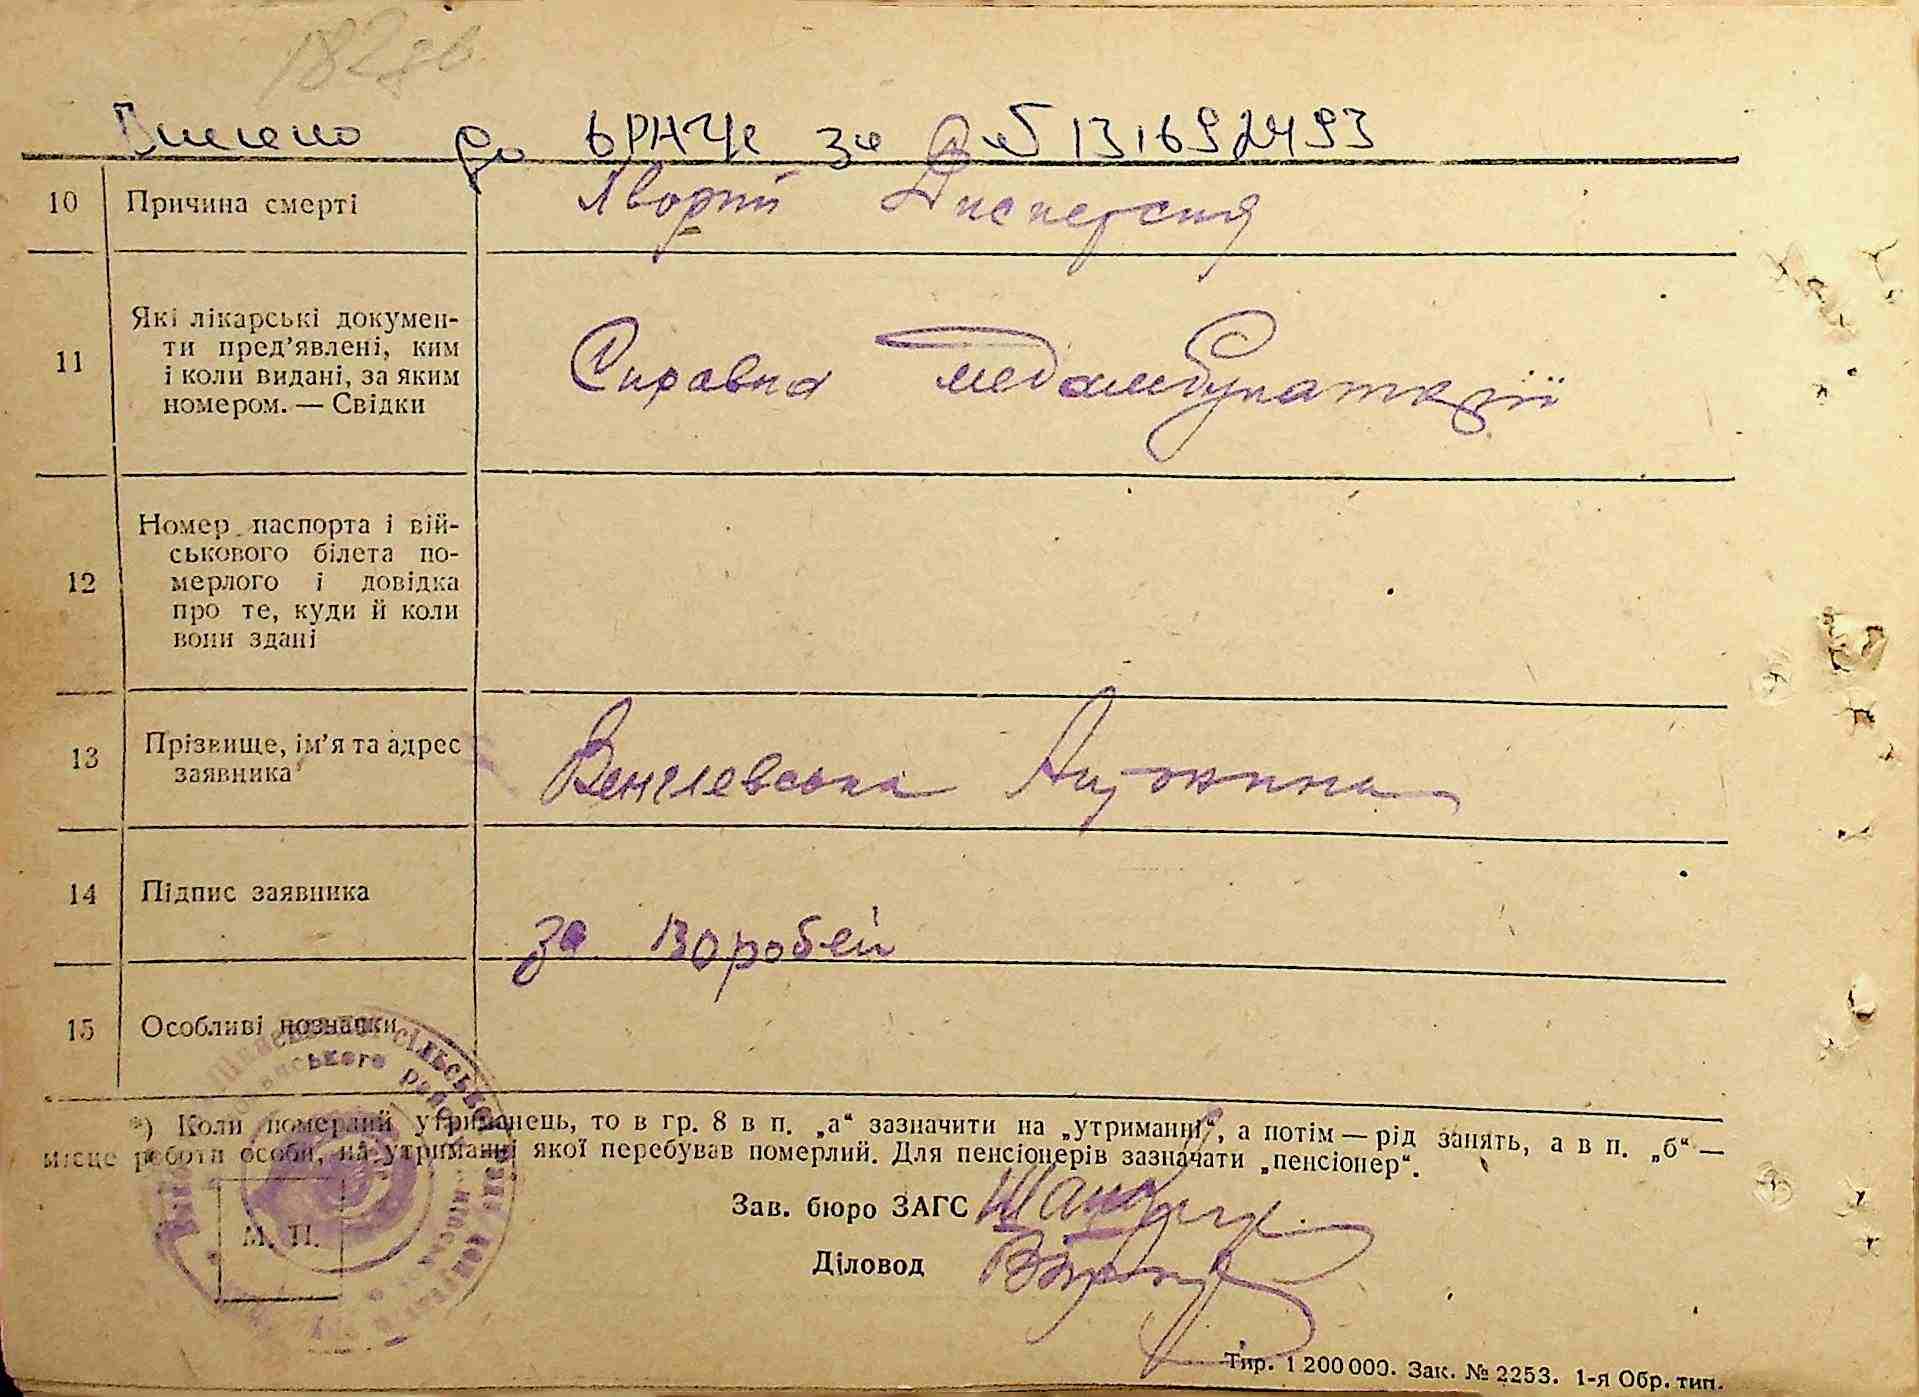 182 зв.
Внесено до ЄРНЧе за а/з 131692493
10 Причина смерті
Хворій Диспепсия
11 Які лікарські докумен-
ти пред’явлені, ким
і коли видані, за яким
номером. — Свідки
Справка медамбулаткрії
12 Номер паспорта і вій-
ськового білета по-
мерлого і довідка
про те, куди й коли
вони здані
13 Прізвище, ім’я та адрес
заявника
Венглевська Антоніна
14 Підпис заявника
за Воробей
15 Особливі познанки
*) Коли померлий утриманець, то в гр. 8 в п. „а“ зазначити на „утриманні“, а потім — рід занять, а в п. „б“ —
місце роботи особи, на утриманні якої перебував померлий. Для пенсіонерів зазначати „пенсіонер“.
Зав. бюро ЗАГС
М. П.
Діловод
Тир. 1 200 000. Зак. № 2253. 1-я Обр. тип.